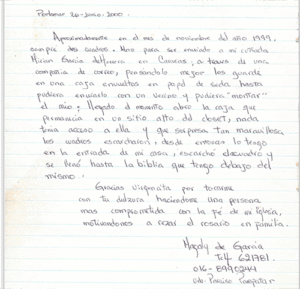 Porlamar 26-Junio-2000.
Aproximadamente en el mes de noviembre del año 1999,
compré dos cuadros. Uno para ser enviado a mi cuñada
Mirian García de        en Caracas; a través de una
compañía de correo, pensándolo mejor los guardé
en una caja envueltos en papel de seda hasta
pudiera enviarlo con un vecino y pudiera "montar"
el mío. Llegado el momento abro la caja que
permanecía en un sitio alto del closet, nada
tenía acceso a ella y que sorpresa tan maravillosa,
los cuadros escarcharon, desde entonces lo tengo
en la entrada de mi casa, escarchó el cuadro y
se llenó hasta la biblia que tengo debajo del
mismo.
Gracias Virgencita por tocarme
con tu dulzura haciéndome una persona
mas comprometida con la fé de mi iglesia,
motivandonos a rezar el rosario en familia.
Magaly de García
Telf. 621981.
016-8990244
Urb. Paraiso Pampatar